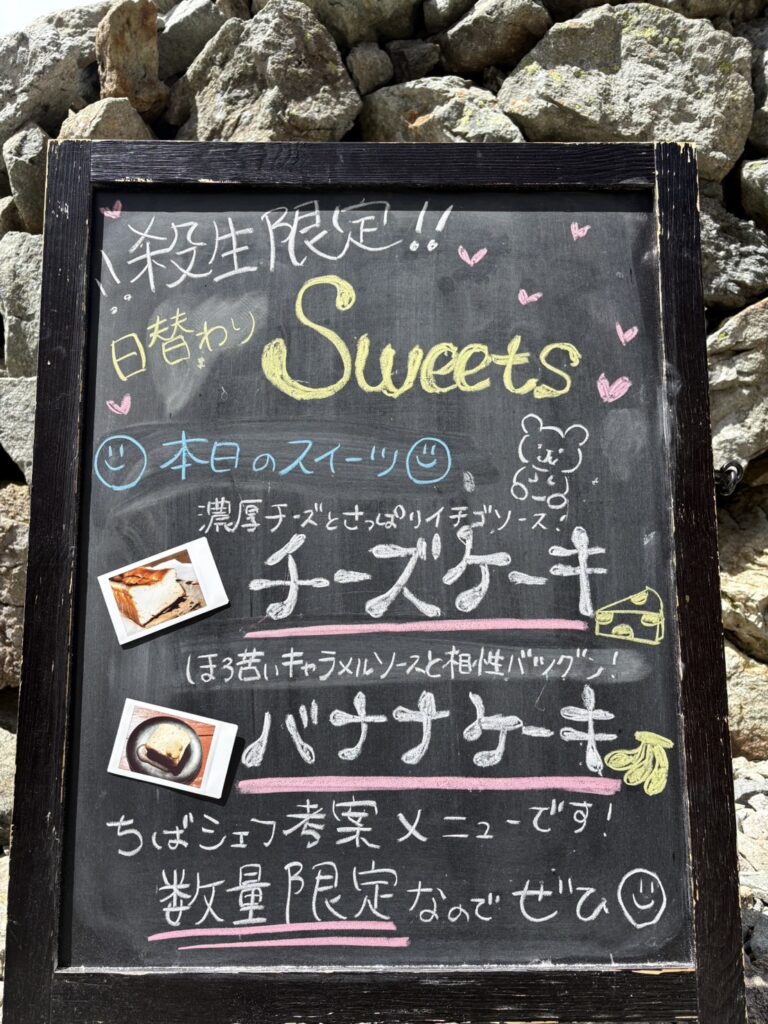 殺生限定!!
日替わり Sweets
本日のスイーツ
濃厚チーズとさっぱりイチゴソース!
チーズケーキ
ほろ苦いキャラメルソースと相性バツグン!
バナナケーキ
ちばシェフ考案メニューです!
数量限定なのでぜひ